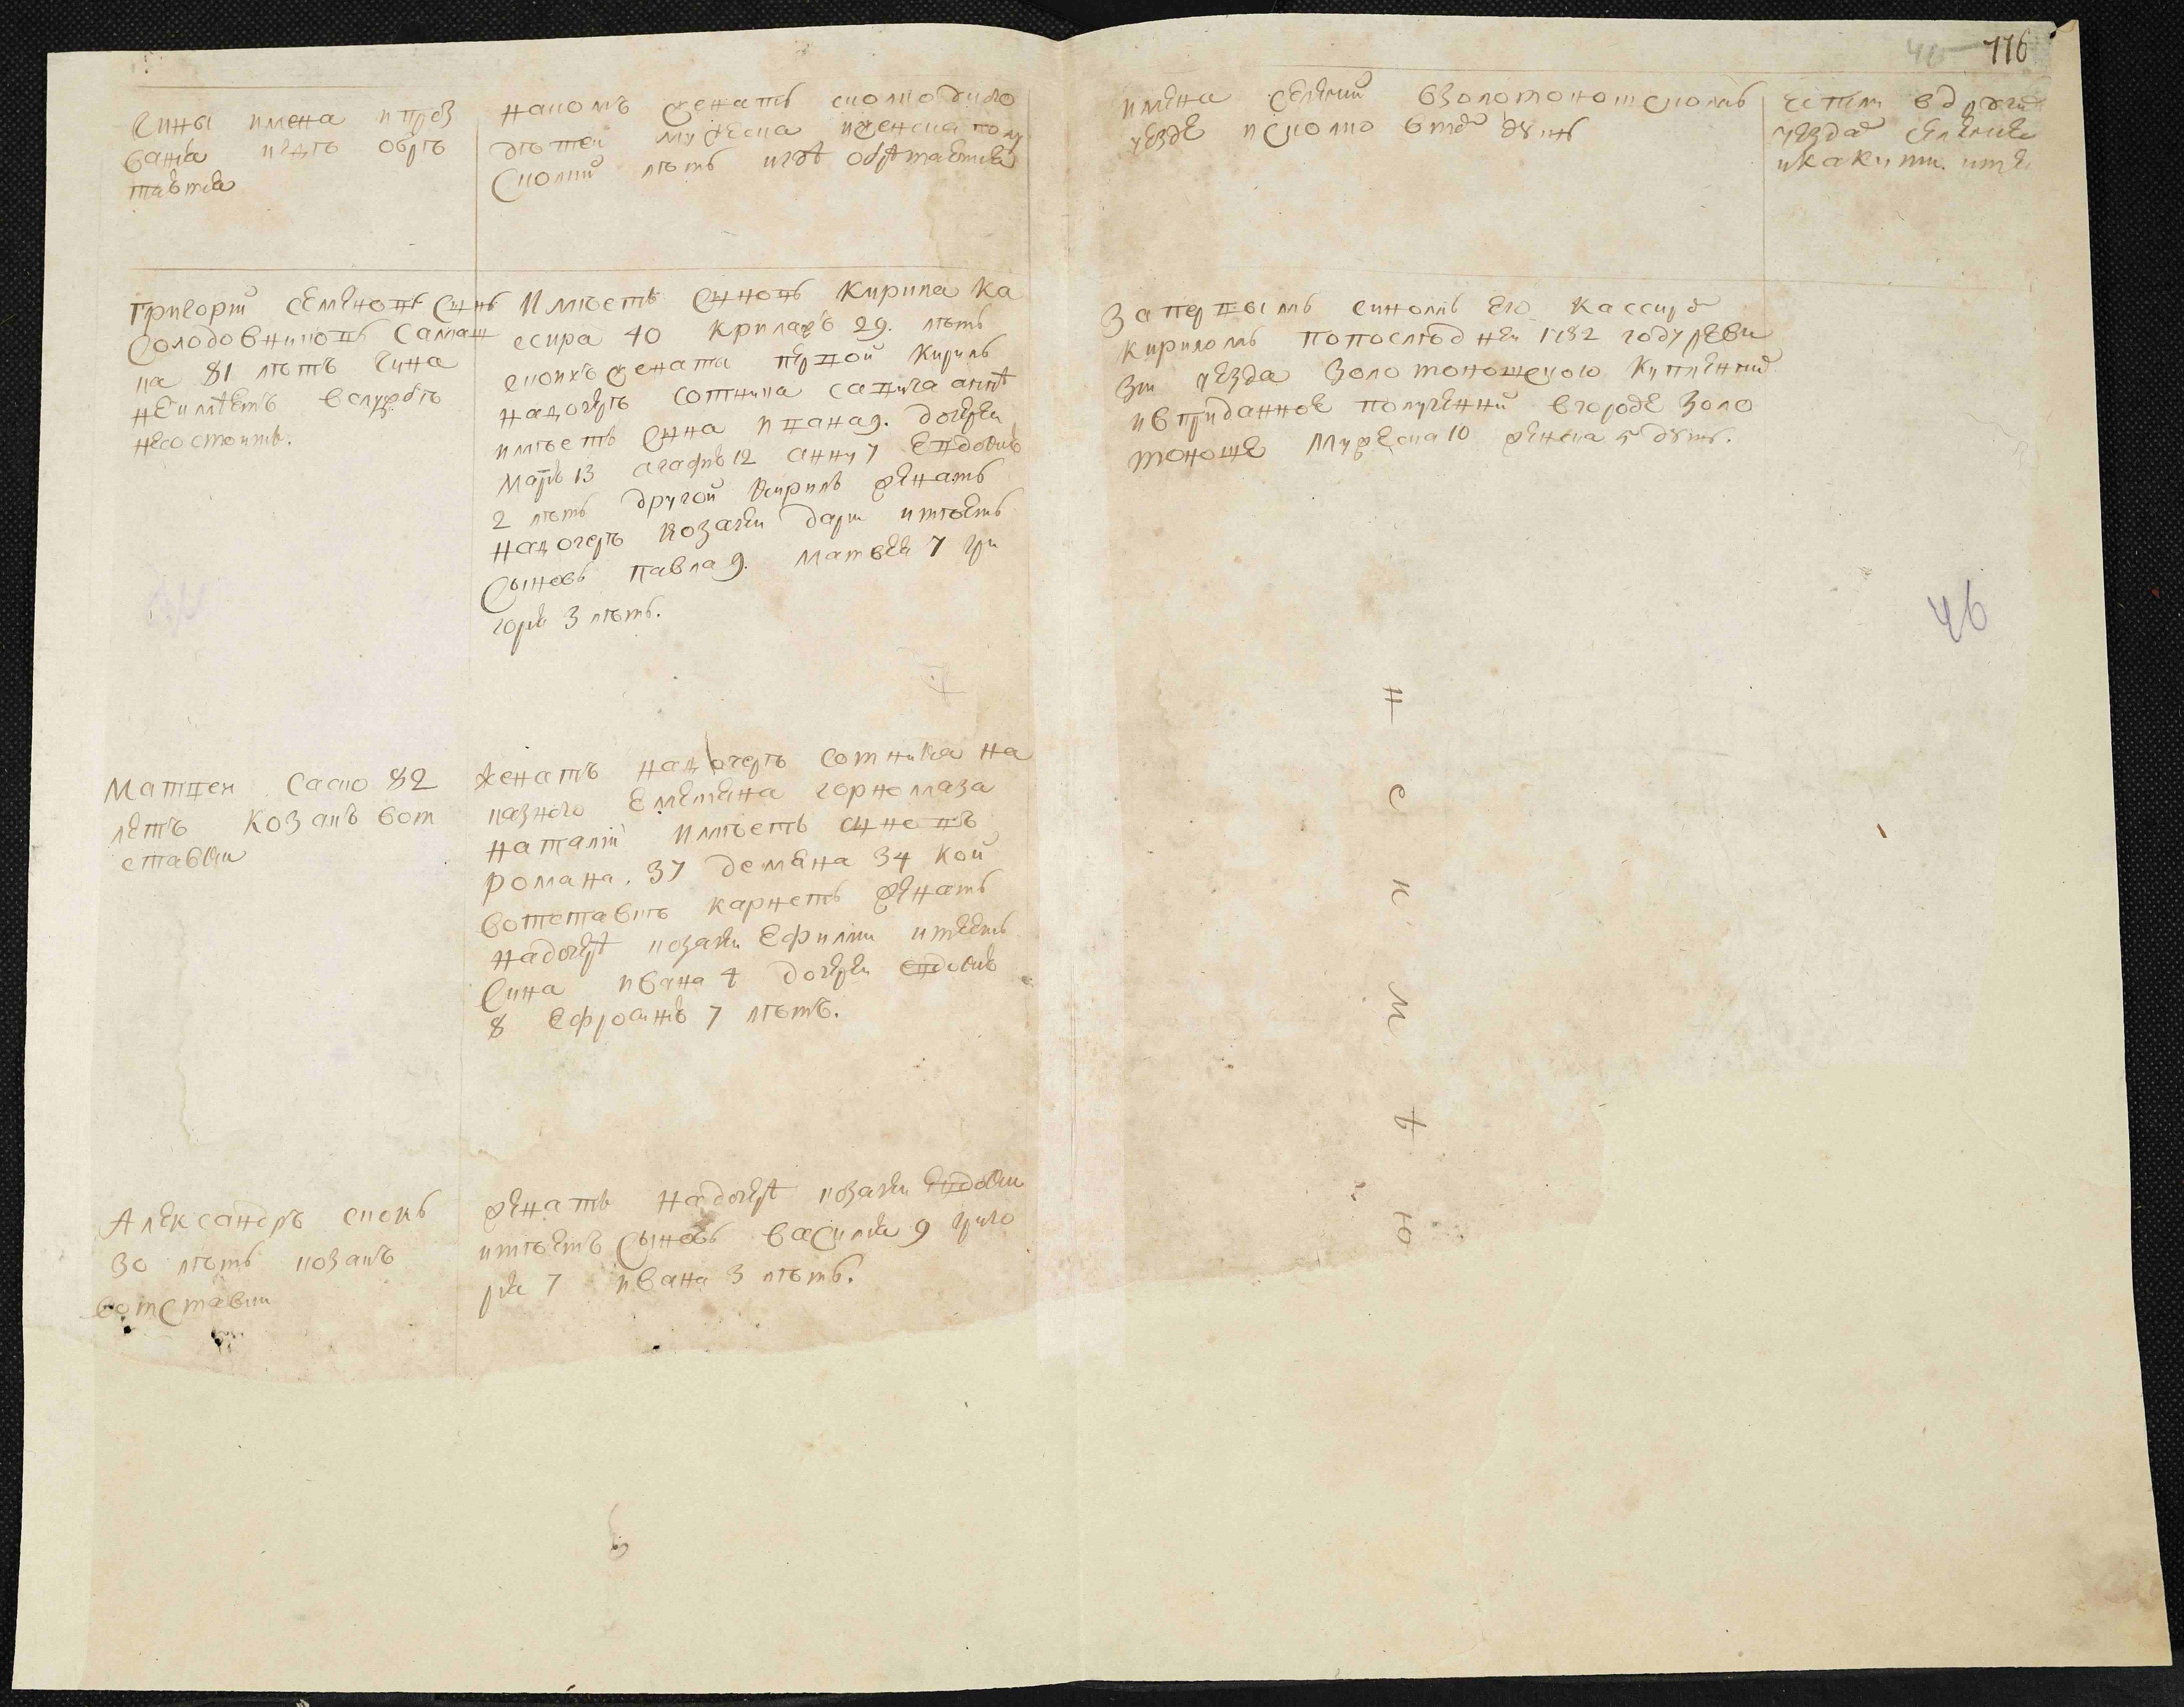 116
46
Чины имена и проз
вания и гдѣ обрѣ
таются
на комъ женатъ сколко
дѣтей мужеска и женска полу
сколки лѣтъ и гдѣ обрѣтаются
имена селений в золотоношскомъ
уезде и сколко в тех душъ
естли в других
уездах селения
и каки ти
Григорий семеновъ сынъ
Солодовниковъ
81 лѣтъ чина
не имѣетъ в службѣ
не состоитъ.
Имѣетъ сыновъ Кирила ка
ссира 40 Кирила 29. лѣтъ
женати первой Кирилъ
на дочерѣ сотника
имѣетъ сына ивана 9. дочерей
Марю 13 агафю 12 анну 7 евдокию
2 лѣтъ другой Кирилъ женатъ
на дочерѣ козачки дари имѣетъ
сыновъ павла 9. матвея 7 гри
горя 3 лѣтъ.
За первымъ синомъ его кассиром
Кириломъ по последней 1782 году реви
зии уезда золотоношского купленний
и в приданное полученни в городе Золо
тоноше мужеска 10 женска 5 душъ.
46
Матвей Саско 82
летъ козакъ в от
ставки
женатъ на дочерѣ сотника на
казного Емеляна
натали имѣетъ сыновъ
романа. 37 демяна 34 кой
в отставкѣ карнетъ женатъ
на дочерѣ козачки Ефимии имеетъ
сина ивана 4 дочерей евдокию
8 Ефросиню 7 лѣтъ.
н
е
и
м
ѣ
ю
Александръ
30 лѣтъ козакъ
в отставки
женатъ на дочерѣ козачки Евдокии
имѣетъ сыновъ василия 9 григо
рия 7 ивана 3 лѣтъ.